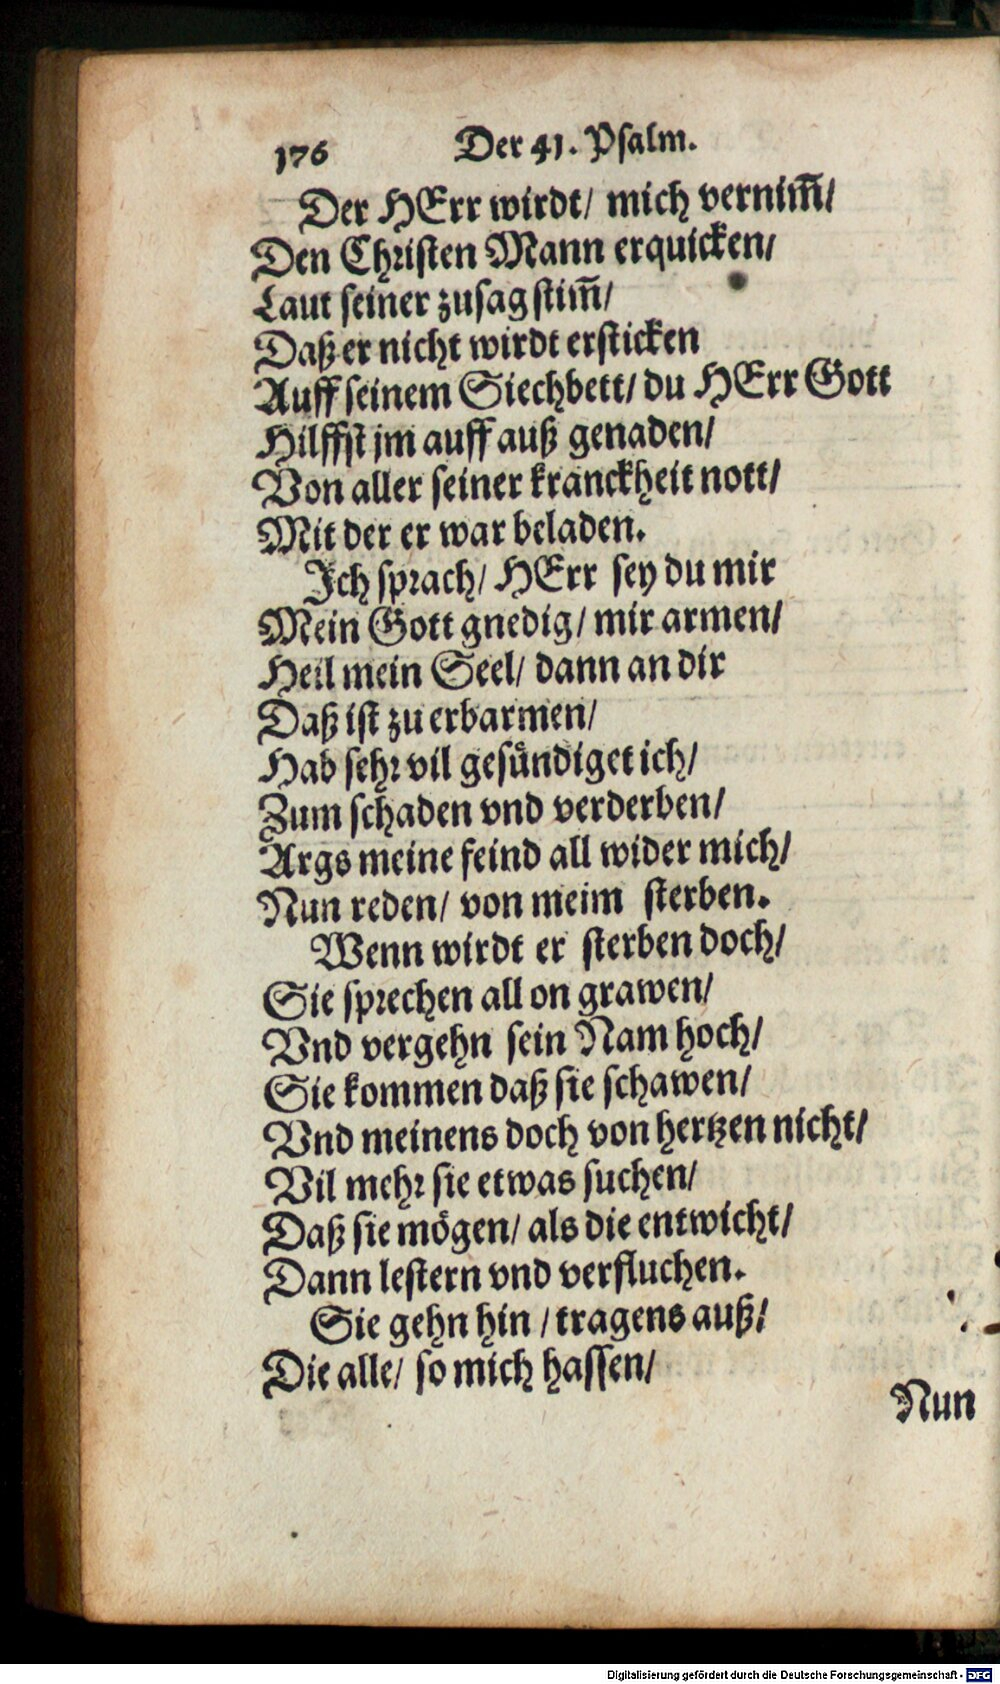 176 Der 41. Psalm.
Der HErr wirdt/ mich vernim̄/
Den Christen Mann erquicken/
Laut seiner zusag stim̄/
Daß er nicht wirdt ersticken
Auff seinem Siechbett/ du HErr Gott
Hilffst jm auff auß genaden/
Von aller seiner kranckheit nott/
Mit der er war beladen.
Ich sprach/ HErr sey du mir
Mein Gott gnedig/ mir armen/
Heil mein Seel/ dann an dir
Daß ist zu erbarmen/
Hab sehr vil gesuͤndiget ich/
Zum schaden vnd verderben/
Args meine feind all wider mich/
Nun reden/ von meim sterben.
Wenn wirdt er sterben doch/
Sie sprechen all on grawen/
Vnd vergehn sein Nam hoch/
Sie kommen daß sie schawen/
Vnd meinens doch von hertzen nicht/
Vil mehr sie etwas suchen/
Daß sie mögen/ als die entwicht/
Dann lestern vnd verfluchen.
Sie gehn hin / tragens auß/
Die alle/ so mich hassen/
Nun
Digitalisierung gefördert durch die Deutsche Forschungsgemeinschaft - DFG